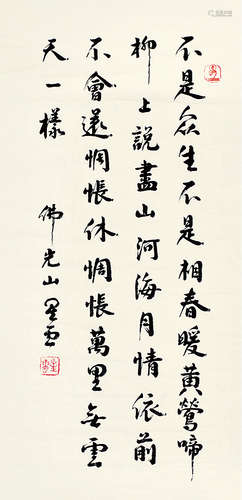 不是眾生不是相春暖黃鶯啼
柳上說盡山河海月情依前
不會還惆悵休惆悵萬里無雲
天一樣
佛光山星雲